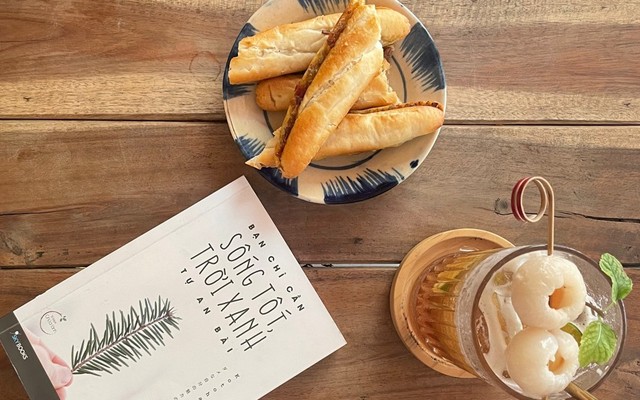 BẠN CHỈ CẦN
SỐNG TỐT,
TRỜI XANH
TỰ AN BÀI
SKYBOOKS